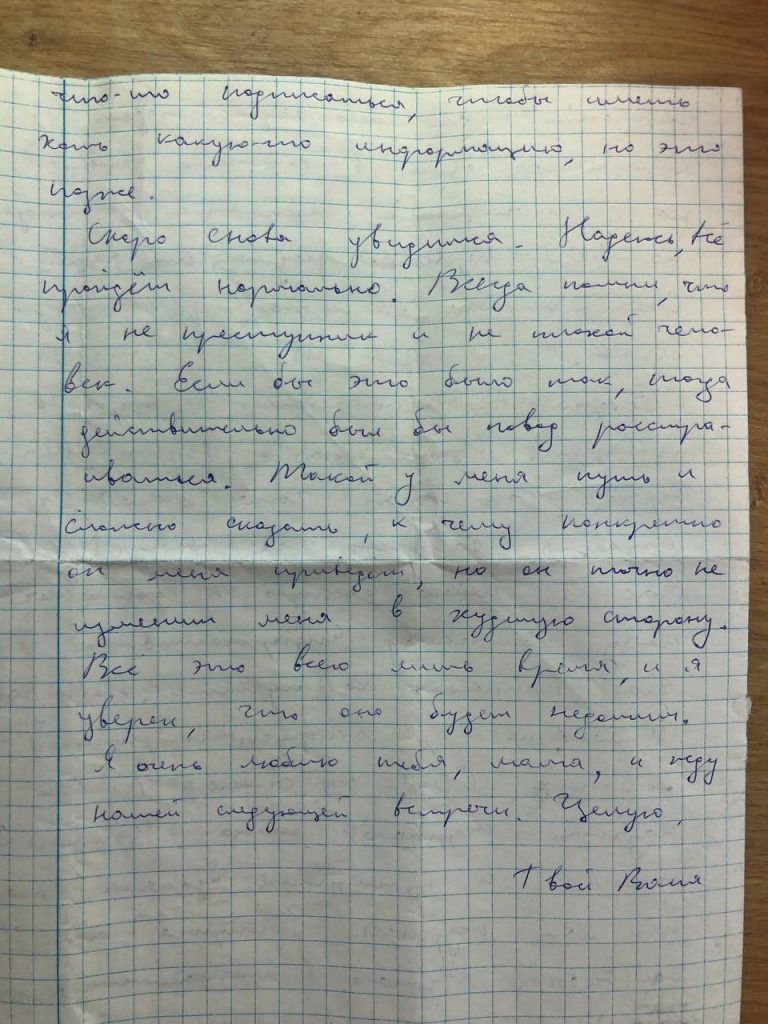 что-то подписаться, чтобы иметь
хоть какую-то информацию, но это
позже.
Скоро снова увидимся. Надеюсь, всё
пройдёт нормально. Всегда помни, что
я не преступник и не плохой чело-
век. Если бы это было так, тогда
действительно был бы повод расстра-
иваться. Такой у меня путь и
сложно сказать, к чему конкретно
он меня приведёт, но он точно не
изменит меня в худшую сторону.
Всё это всего лишь время, и я
уверен, что оно будет недолгим.
Я очень люблю тебя, мама, и жду
нашей следующей встречи. Целую,
Твой Рома